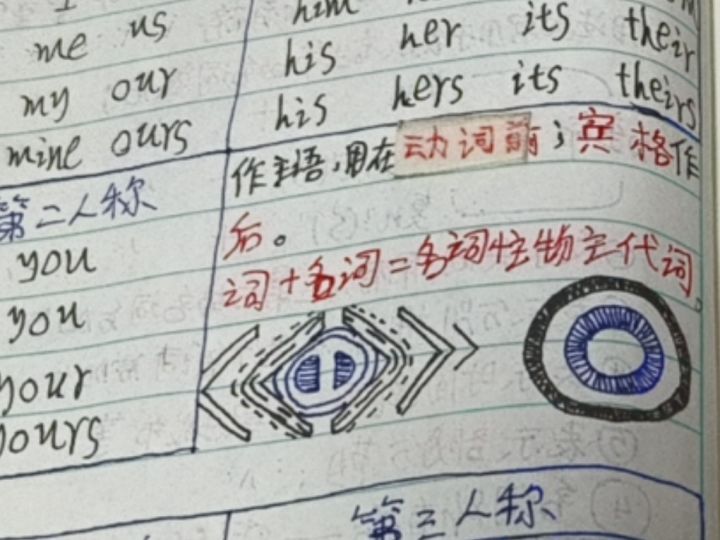 me us him
my our his her its their
mine ours his hers its theirs
作主语,用在动词前;宾格作
第二人称
后。
you
词+名词=名词性物主代词。
you
your
yours
第三人称